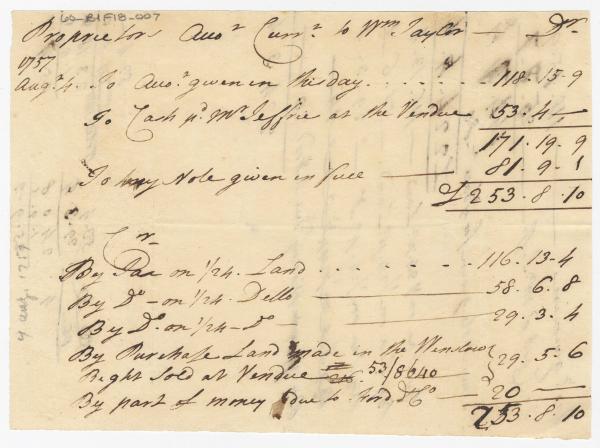 60-B1F18-007
Proprietors Accot Currt to Wm Taylor — Dr
1757
Augt 4. To Accot given in this day . . . . . . . 118.15.9
To Cash pd Mr Jeffrie at the Vendue 53.4—
171.19.9
To my Note given in full — 81.9.1
£253.8.10
Cr
By Tax on 1/24. Land . . . . . . . 116.13.4
By Do — on 1/24. Dello — 58.6.8
By Do. on 1/24 — Do — 29.3.4
By Purchase Land made in the Winslow
Right Sold at Vendue 53/8 29.5.6
By part of money due to 20 —
253.8.10
4 Aug. 1757